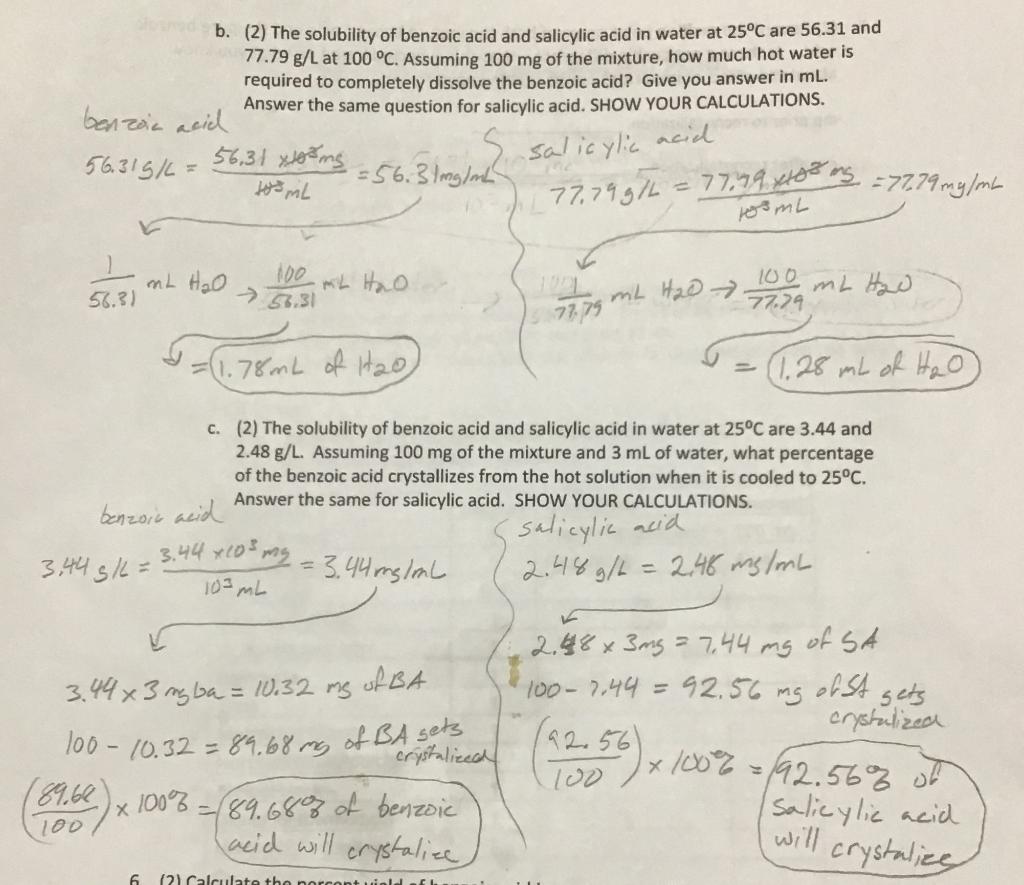 b. (2) The solubility of benzoic acid and salicylic acid in water at 25ºC are 56.31 and
77.79 g/L at 100 ºC. Assuming 100 mg of the mixture, how much hot water is
required to completely dissolve the benzoic acid? Give you answer in mL.
Answer the same question for salicylic acid. SHOW YOUR CALCULATIONS.
benzoic acid
56.31 g/L = 56.31 x10³ mg / 10³ mL = 56.31 mg/mL
1/56.31 mL H2O → 100/56.31 mL H2O
= 1.78 mL of H2O
salicylic acid
77.79 g/L = 77.79 x10³ mg / 10³ mL = 77.79 mg/mL
1/77.79 mL H2O → 100/77.79 mL H2O
= 1.28 mL of H2O
c. (2) The solubility of benzoic acid and salicylic acid in water at 25ºC are 3.44 and
2.48 g/L. Assuming 100 mg of the mixture and 3 mL of water, what percentage
of the benzoic acid crystallizes from the hot solution when it is cooled to 25ºC.
Answer the same for salicylic acid. SHOW YOUR CALCULATIONS.
benzoic acid
3.44 g/L = 3.44 x10³ mg / 10³ mL = 3.44 mg/mL
3.44 x 3 mg ba = 10.32 mg of BA
100 - 10.32 = 89.68 mg of BA gets
crystalized
(89.68/100) x 100% = 89.68% of benzoic
acid will crystalize
salicylic acid
2.48 g/L = 2.48 mg/mL
2.48 x 3mg = 7.44 mg of SA
100 - 7.44 = 92.56 mg of SA gets
crystalized
(92.56/100) x 100% = 92.56% of
salicylic acid
will crystalize
6. (2) Calculate the percent yield of